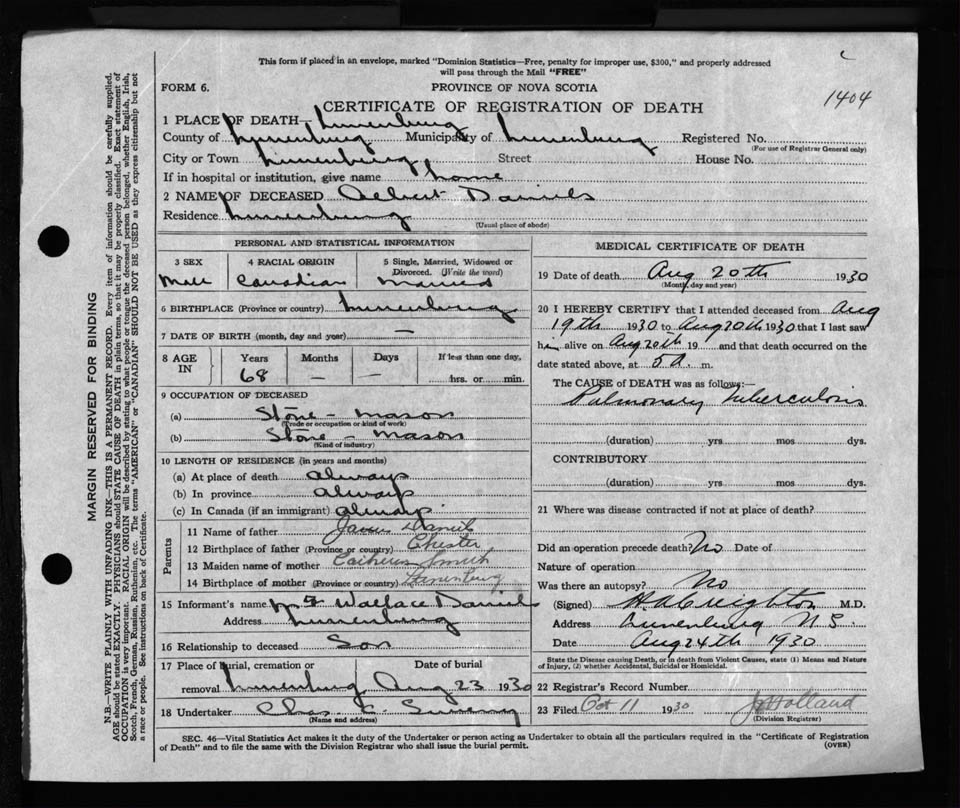 This form if placed in an envelope, marked "Dominion Statistics—Free, penalty for improper use, $300," and properly addressed
will pass through the Mail "FREE"
1404
FORM 6.
PROVINCE OF NOVA SCOTIA
CERTIFICATE OF REGISTRATION OF DEATH
1 PLACE OF DEATH— Lunenburg
County of Lunenburg Municipality of Lunenburg Registered No.
(For use of Registrar General only)
City or Town Lunenburg, Street House No.
If in hospital or institution, give name home
2 NAME OF DECEASED Albert Daniels
Residence Lunenburg
(Usual place of abode)
PERSONAL AND STATISTICAL INFORMATION
3 SEX 4 RACIAL ORIGIN 5 Single, Married, Widowed or
Divorced. (Write the word)
Male Canadian Married
6 BIRTHPLACE (Province or country) Lunenburg
7 DATE OF BIRTH (month, day and year) —
8 AGE IN Years Months Days If less than one day,
68 — — hrs. or min.
9 OCCUPATION OF DECEASED
(a) Stone - mason
(Trade or occupation or kind of work)
(b) Stone - mason
(Kind of industry)
10 LENGTH OF RESIDENCE (in years and months)
(a) At place of death always
(b) In province always
(c) In Canada (if an immigrant) always
Parents
11 Name of father James Daniels
12 Birthplace of father (Province or country) Chester
13 Maiden name of mother Smith
14 Birthplace of mother (Province or country) Lunenburg
15 Informant's name Wallace Daniels
Address Lunenburg
16 Relationship to deceased Son
17 Place of burial, cremation or Date of burial
removal Lunenburg Aug 23 1930
18 Undertaker Chas
(Name and address)
MEDICAL CERTIFICATE OF DEATH
19 Date of death Aug 20th 1930
(Month, day and year)
20 I HEREBY CERTIFY that I attended deceased from Aug
19th 1930 to Aug 20th 1930 that I last saw
him alive on Aug 20th 19 and that death occurred on the
date stated above, at 5 a. m.
The CAUSE of DEATH was as follows:—
Pulmonary Tuberculosis
(duration) yrs mos dys.
CONTRIBUTORY
(duration) yrs mos dys.
21 Where was disease contracted if not at place of death?
Did an operation precede death? No Date of
Nature of operation
Was there an autopsy? No
(Signed) H A Creighton M.D.
Address Lunenburg N S
Date Aug 24th 1930
State the Disease causing Death, or in death from Violent Causes, state (1) Means and Nature
of Injury, (2) whether Accidental, Suicidal or Homicidal.
22 Registrar's Record Number
23 Filed Oct 11 1930 Holland
(Division Registrar)
SEC. 46—Vital Statistics Act makes it the duty of the Undertaker or person acting as Undertaker to obtain all the particulars required in the "Certificate of Registration
of Death" and to file the same with the Division Registrar who shall issue the burial permit.
(OVER)
MARGIN RESERVED FOR BINDING
N.B.—WRITE PLAINLY WITH UNFADING INK—THIS IS A PERMANENT RECORD. Every item of information should be carefully supplied.
AGE should be stated EXACTLY. PHYSICIANS should STATE CAUSE OF DEATH in plain terms, so that it may be properly classified. Exact statement of
OCCUPATION is very important. RACIAL ORIGIN will be described by stating to what people or tongue the deceased person belonged, whether English, Irish,
Scotch, French, German, Russian, Ruthenian, etc. The terms "AMERICAN" or "CANADIAN" SHOULD NOT BE USED as they express citizenship but not
a race or people. See instructions on back of Certificate.